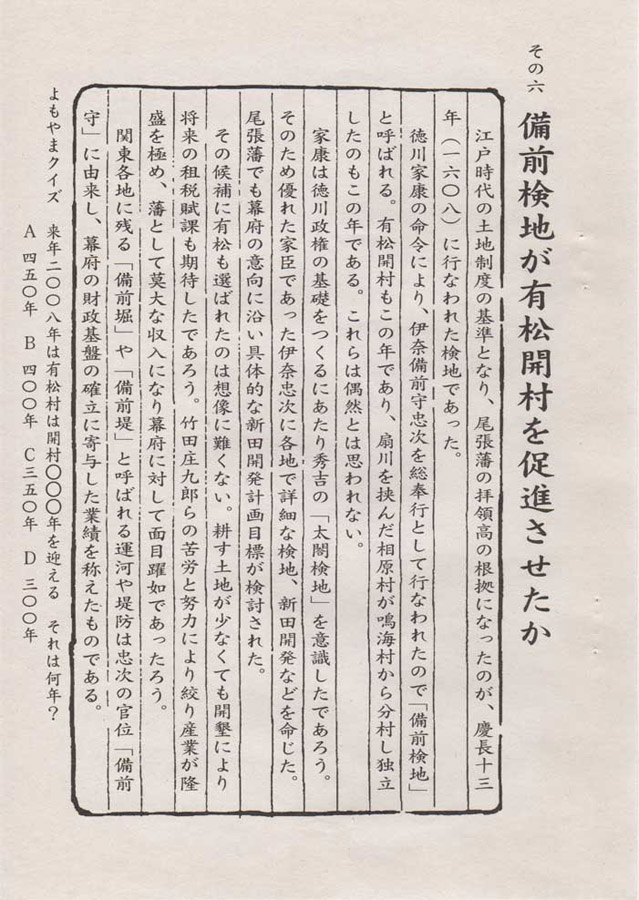 その六
備前検地が有松開村を促進させたか
江戸時代の土地制度の基準となり、尾張藩の拝領高の根拠になったのが、慶長十三
年(一六〇八)に行なわれた検地であった。
徳川家康の命令により、伊奈備前守忠次を総奉行として行なわれたので「備前検地」
と呼ばれる。有松開村もこの年であり、扇川を挟んだ相原村が鳴海村から分村し独立
したのもこの年である。これらは偶然とは思われない。
家康は徳川政権の基礎をつくるにあたり秀吉の「太閤検地」を意識したであろう。
そのため優れた家臣であった伊奈忠次に各地で詳細な検地、新田開発などを命じた。
尾張藩でも幕府の意向に沿い具体的な新田開発計画目標が検討された。
その候補に有松も選ばれたのは想像に難くない。耕す土地が少なくても開墾により
将来の租税賦課も期待したであろう。竹田庄九郎らの苦労と努力により絞り産業が隆
盛を極め、藩として莫大な収入になり幕府に対して面目躍如であったろう。
関東各地に残る「備前堀」や「備前堤」と呼ばれる運河や堤防は忠次の官位「備前
守」に由来し、幕府の財政基盤の確立に寄与した業績を称えたものである。
よもやまクイズ 来年二〇〇八年は有松村は開村〇〇〇年を迎える それは何年?
A 四五〇年 B 四〇〇年 C三五〇年 D 三〇〇年